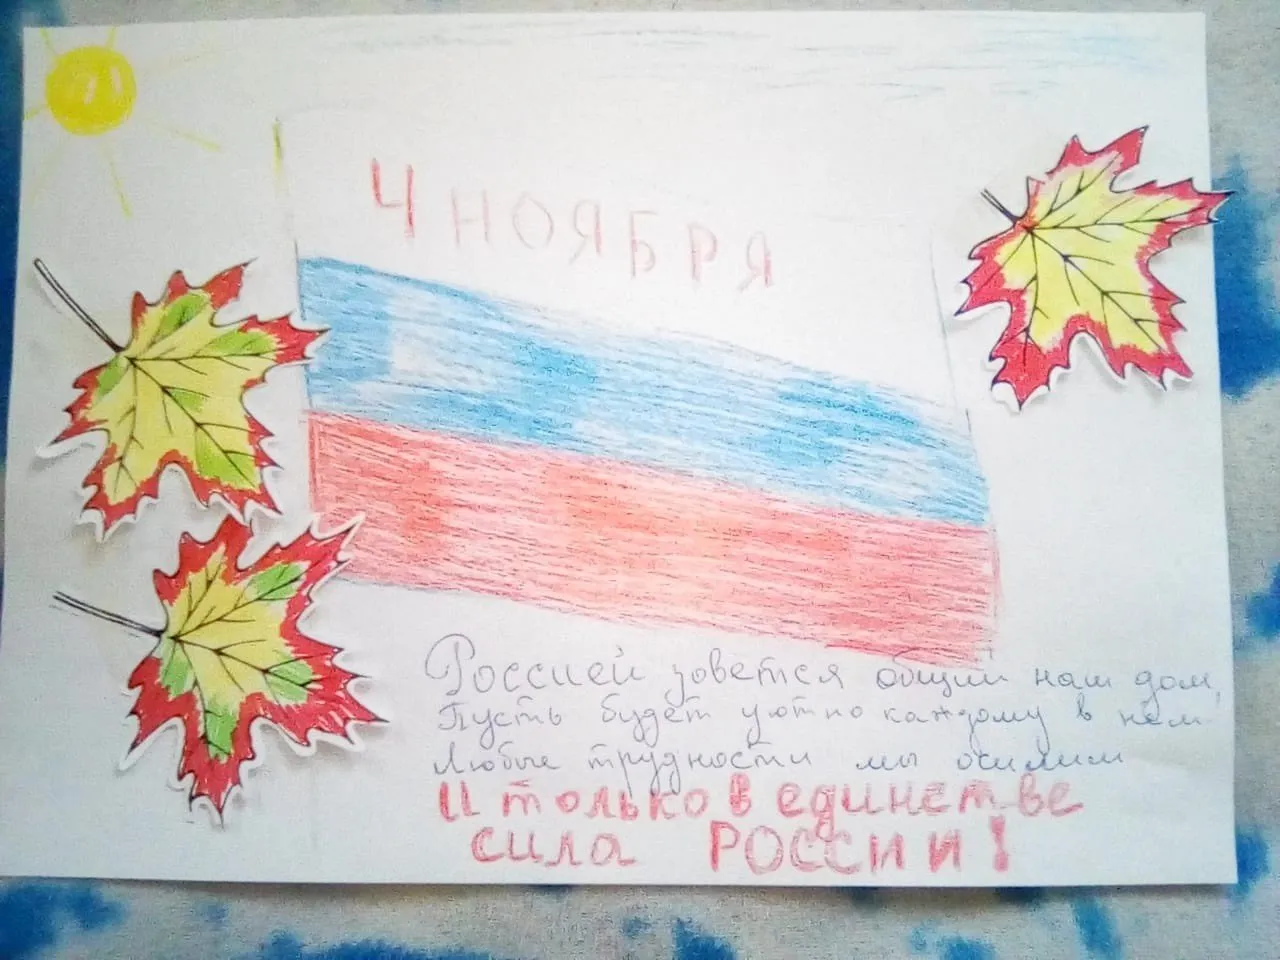 4 НОЯБРЯ
Россией зовется общий наш дом,
Пусть будет уютно каждому в нём
Любые трудности мы осилим
И только в единстве
сила РОССИИ!